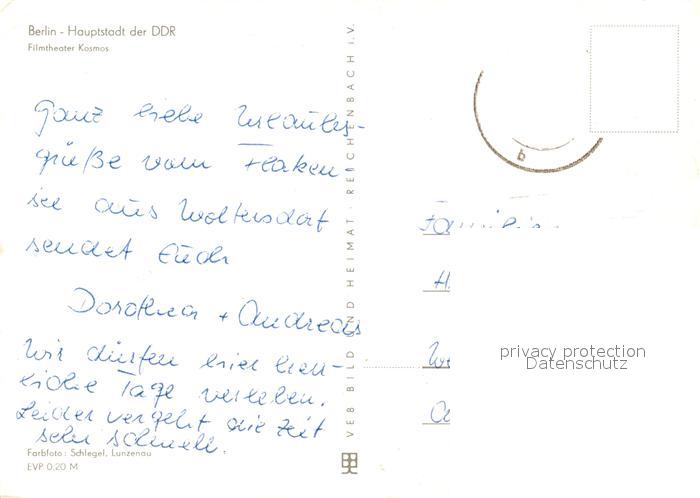 Berlin - Hauptstadt der DDR
Filmtheater Kosmos
Ganz liebe Urlaubs-
grüße vom Flaken-
see aus Woltersdorf
sendet Euch
Dorothea + Andreas
Wir dürfen hier herr-
liche Tage verleben.
Leider vergeht die Zeit
sehr schnell.
Farbfoto: Schlegel, Lunzenau
EVP 0,20 M
VEB BILD UND HEIMAT · REICHENBACH i.V.
b
Familie
H
We
privacy protection
Datenschutz